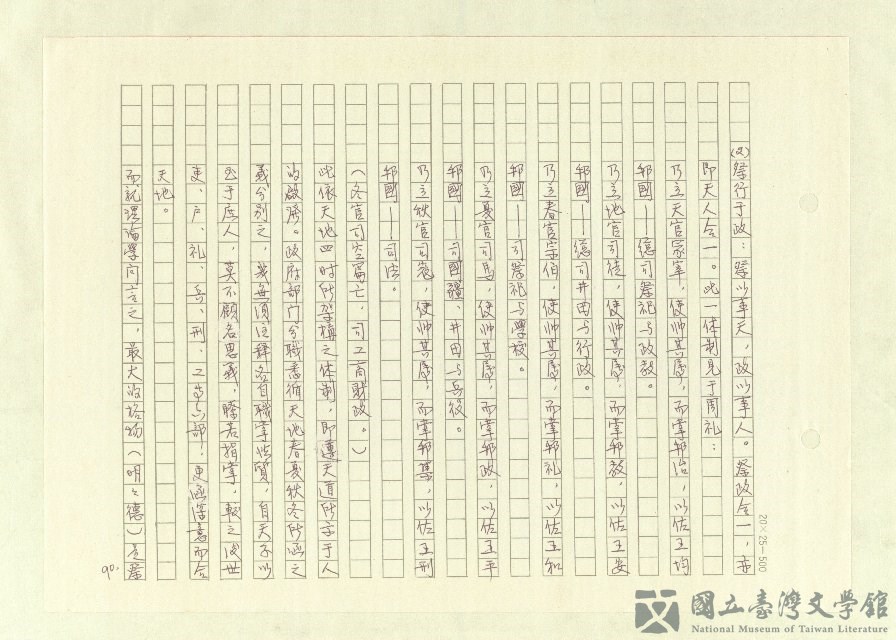 (四)祭行于政：祭以事天，政以事人。祭政合一，亦
即天人合一。此一体制見于周礼：
乃立天官冢宰，使帅其属，而掌邦治，以佐王均
邦國——總司祭祀与政教。
乃立地官司徒，使帅其属，而掌邦教，以佐王安
邦國——總司井田与行政。
乃立春官宗伯，使帅其属，而掌邦礼，以佐王和
邦國——司祭祀与學校。
乃立夏官司馬，使帅其属，而掌邦政，以佐王平
邦國——司國疆、井田与兵役。
乃立秋官司寇，使帅其属，而掌邦禁，以佐王刑
邦國——司法。
（冬官司空篇亡，司工商財政。）
此依天地四时所架構之体制，即遵天道所示于人
的啟势。政府部门分職悉循天地春夏秋冬所涵之
義分别之，我無须注释各自職掌性質，自天子以
至于庶人，莫不顧名思義，瞭若指掌，較之後世
吏、户、礼、兵、刑、工等六部，更涵深意而合
天地。
而就理論學问言之，最大的格物（明明德）是祭
90.
20×25=500
國立臺灣文學館
National Museum of Taiwan Literature